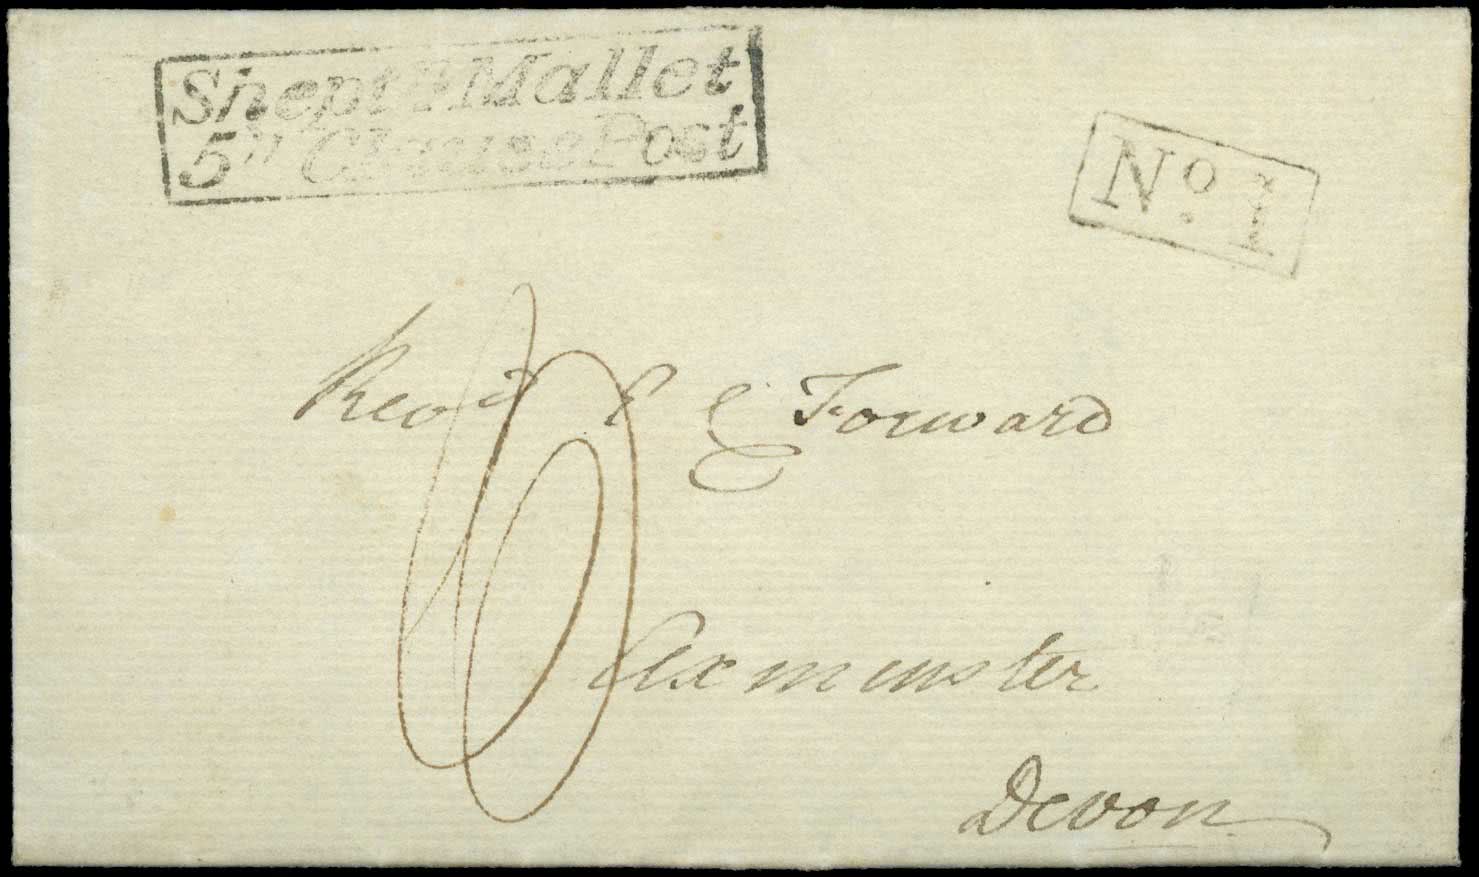 Shepton Mallet
5th Clause Post
No. 1
Revd E E Forward
Axminster
Devon